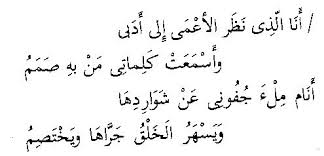 / أَنَا الَّذِى نَظَر الأَعْمَى إِلى أَدَبى
وأَسْمَعَتْ كَلِماتِى مَنْ بهِ صَمَمُ
أَنَام مِلْءَ جُفُونِى عَنْ شَوَارِدِهَا
وَيَسْهَرُ الخَلْقُ جَرَّاهَا ويَخْتَصِمُ